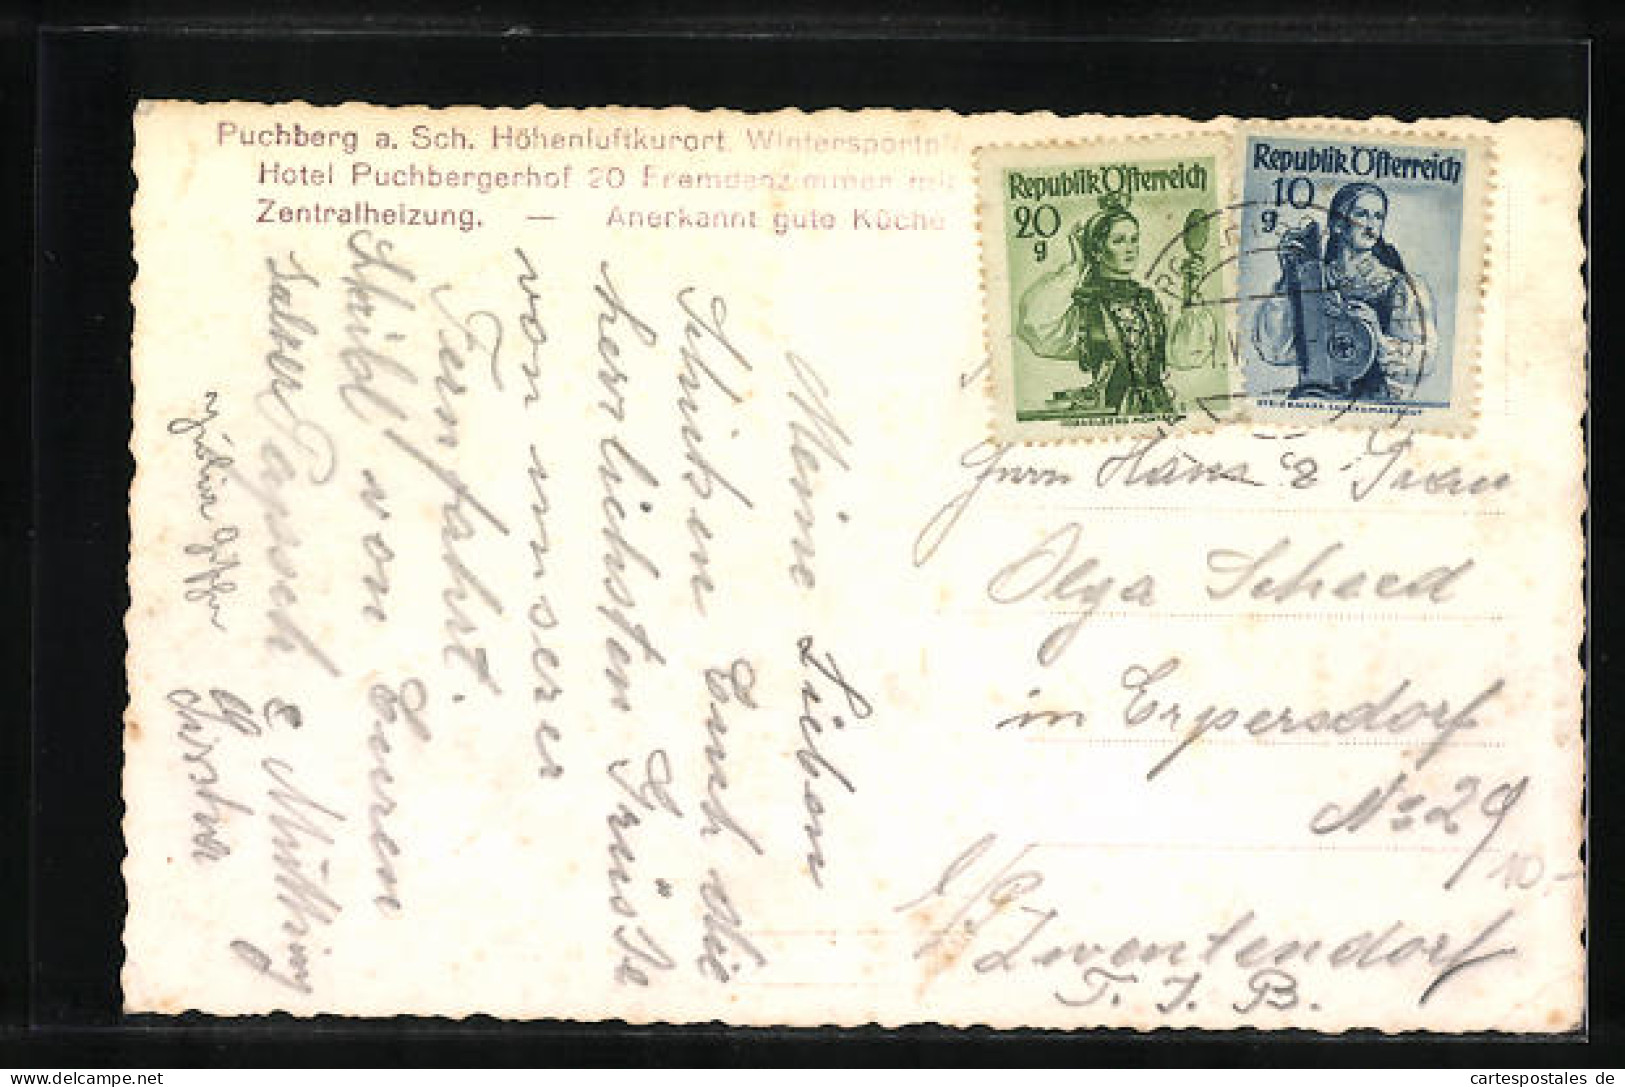 Puchberg a. Sch. Höhenluftkurort. Wintersportpl
Hotel Puchbergerhof 20 Fremdenzimmer mit
Zentralheizung. — Anerkannt gute Küche
Republik Österreich
20
g
Republik Österreich
10
g
Meine Lieben
Schicken Euch die
herzlichsten Grüsse
von unserer
Fernfahrt.
von Euren
Herrn Hans & Frau
Olga Scheed
in Erpersdorf
No 29
Zwentendorf
10.-
cartespostales de